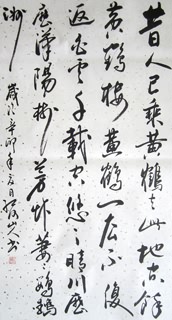 昔人已乘黃鶴去此地空餘
黃鶴樓黃鶴一去不復
返白雲千載空悠悠晴川歷
歷漢陽樹芳草萋萋鸚鵡
洲 歲次辛卯年夏日 書